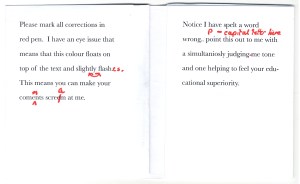 Please mark all corrections in
red pen. I have an eye issue that
means that this colour floats on
top of the text and slightly flashes.
This means you can make your
m a
coments scream at me.
Notice I have spelt a word
P - capital letter here
wrong, point this out to me with
a simultaniosly judging-ame tone
and one helping to feel your edu-
cational superiority.